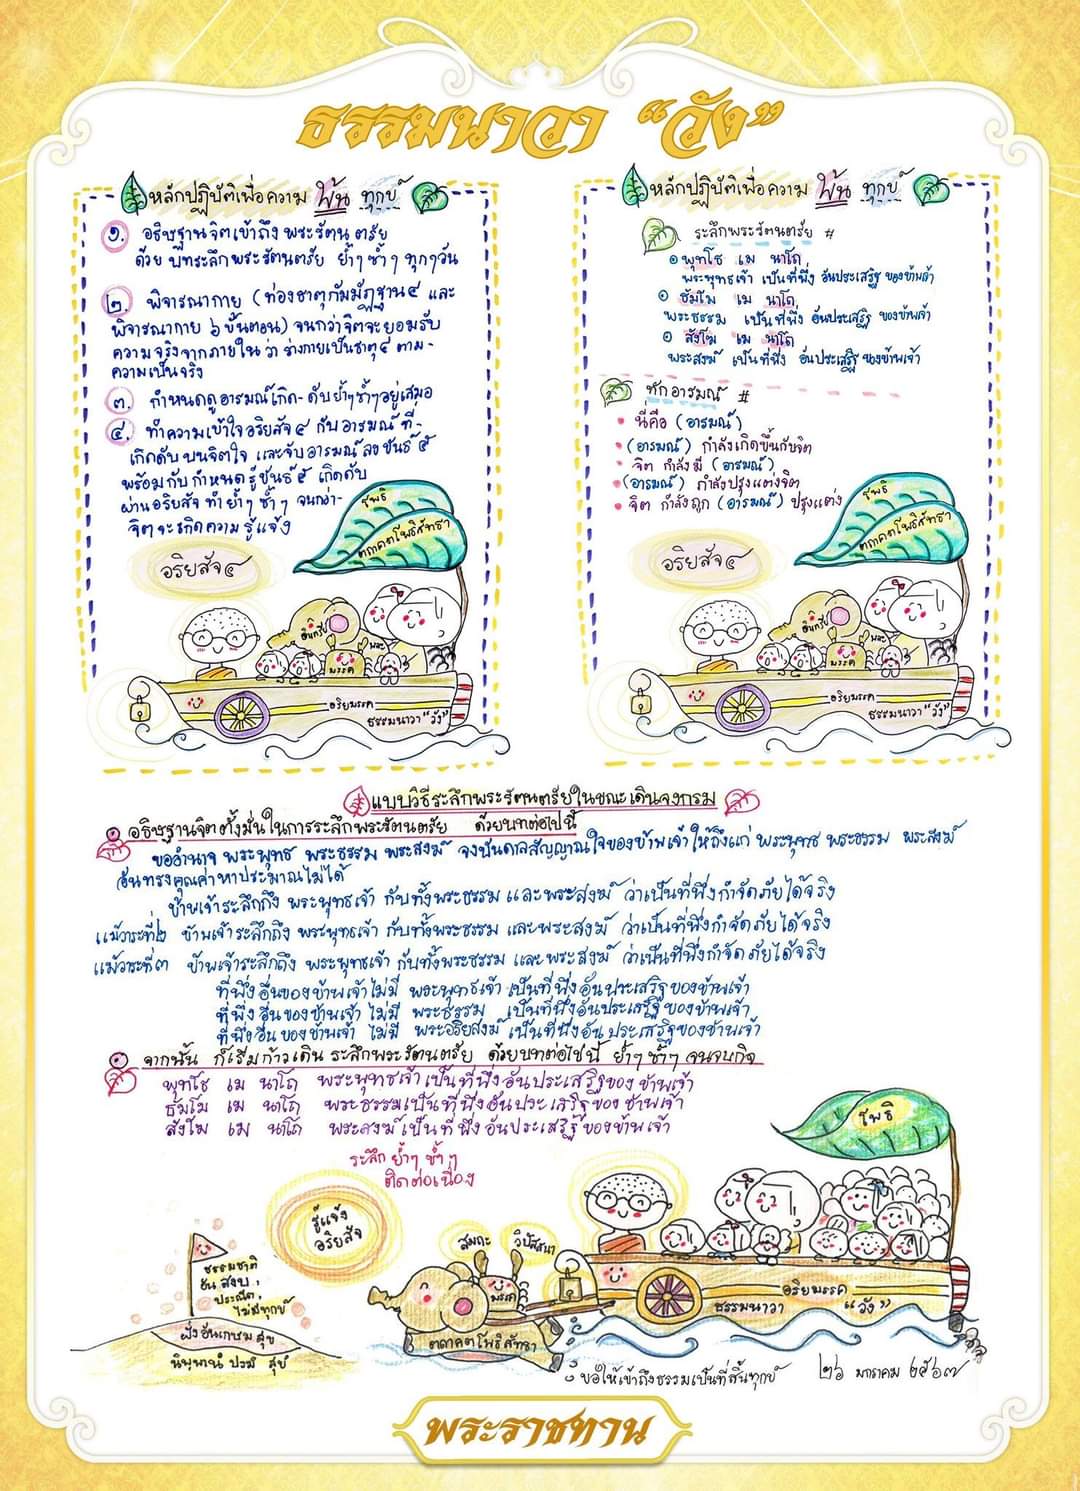 ธรรมนาวา “วัง”
หลักปฏิบัติเพื่อความ พ้น ทุกข์
๑. อธิษฐานจิตเข้าถึงพระรัตนตรัย
ด้วย บทระลึกพระรัตนตรัย ย้ำๆ ซ้ำๆ ทุกๆวัน
๒. พิจารณากาย (ท่องธาตุกัมมัฏฐาน๔ และ
พิจารณากาย ๖ ขั้นตอน) จนกว่าจิตจะยอมรับ
ความจริงจากภายใน ว่า ร่างกายเป็นธาตุ๔ ตาม-
ความเป็นจริง
๓. กำหนดดูอารมณ์เกิด-ดับย้ำๆซ้ำๆอยู่เสมอ
๔. ทำความเข้าใจอริยสัจ๔ กับอารมณ์ ที่-
เกิดดับ บนจิตใจ และจับอารมณ์ลงขันธ์ ๕
พร้อมกับกำหนดรู้ขันธ์๕ เกิดดับ
ผ่านอริยสัจ ทำย้ำๆ ซ้ำๆ จนกว่า-
จิตจะเกิดความ รู้แจ้ง
โพธิ
ตถาคตโพธิสัทธา
อริยสัจ๔
อินทรีย์
พละ
มรรค
อริยมรรค
ธรรมนาวา “วัง”
หลักปฏิบัติเพื่อความ พ้น ทุกข์
ระลึกพระรัตนตรัย #
พุทโธ เม นาโถ
พระพุทธเจ้า เป็นที่พึ่ง อันประเสริฐ ของข้าพเจ้า
ธัมโม เม นาโถ
พระธรรม เป็นที่พึ่ง อันประเสริฐ ของข้าพเจ้า
สังโฆ เม นาโถ
พระสงฆ์ เป็นที่พึ่ง อันประเสริฐ ของข้าพเจ้า
ทักอารมณ์ #
• นี่คือ (อารมณ์)
• (อารมณ์) กำลังเกิดขึ้นกับจิต
• จิต กำลังมี (อารมณ์)
• (อารมณ์) กำลังปรุงแต่งจิต
• จิต กำลังถูก (อารมณ์) ปรุงแต่ง
โพธิ
ตถาคตโพธิสัทธา
อริยสัจ๔
อินทรีย์
พละ
มรรค
อริยมรรค
ธรรมนาวา “วัง”
แบบวิธีระลึกพระรัตนตรัยในขณะเดินจงกรม
อธิษฐานจิตตั้งมั่นในการระลึกพระรัตนตรัย ด้วยบทต่อไปนี้
ขออำนาจ พระพุทธ พระธรรม พระสงฆ์ จงบันดาลสัญญาณใจของข้าพเจ้าให้ถึงแก่ พระพุทธ พระธรรม พระสงฆ์
อันทรงคุณค่าหาประมาณไม่ได้
ข้าพเจ้าระลึกถึง พระพุทธเจ้า กับทั้งพระธรรม และพระสงฆ์ ว่าเป็นที่พึ่งกำจัดภัยได้จริง
แม้วาระที่๒ ข้าพเจ้าระลึกถึง พระพุทธเจ้า กับทั้งพระธรรม และพระสงฆ์ ว่าเป็นที่พึ่งกำจัดภัยได้จริง
แม้วาระที่๓ ข้าพเจ้าระลึกถึง พระพุทธเจ้า กับทั้งพระธรรม และพระสงฆ์ ว่าเป็นที่พึ่งกำจัดภัยได้จริง
ที่พึ่งอื่นของข้าพเจ้าไม่มี พระพุทธเจ้า เป็นที่พึ่งอันประเสริฐของข้าพเจ้า
ที่พึ่งอื่นของข้าพเจ้า ไม่มี พระธรรม เป็นที่พึ่งอันประเสริฐของข้าพเจ้า
ที่พึ่งอื่นของข้าพเจ้า ไม่มี พระอริยสงฆ์ เป็นที่พึ่งอันประเสริฐของข้าพเจ้า
จากนั้น ก็เริ่มก้าวเดิน ระลึกพระรัตนตรัย ด้วยบทต่อไปนี้ ย้ำๆ ซ้ำๆ จนจบกิจ
พุทโธ เม นาโถ พระพุทธเจ้าเป็นที่พึ่งอันประเสริฐของข้าพเจ้า
ธัมโม เม นาโถ พระธรรมเป็นที่พึ่งอันประเสริฐของข้าพเจ้า
สังโฆ เม นาโถ พระสงฆ์เป็นที่พึ่งอันประเสริฐของข้าพเจ้า
ระลึก ย้ำๆ ซ้ำๆ
ติดต่อเนื่อง
รู้แจ้ง
อริยสัจ
โพธิ
สมถะ
วิปัสสนา
มรรค
ตถาคตโพธิสัทธา
อริยมรรค
ธรรมนาวา “วัง”
ธรรมชาติ
อันสงบ,
ประณีต,
ไม่มีทุกข์
ฝั่งอันเกษม สุข
นิพพานํ ปรมํ สุขํ
ขอให้เข้าถึงธรรมเป็นที่สิ้นทุกข์
๒๖ มกราคม ๒๕๖๗
พระราชทาน